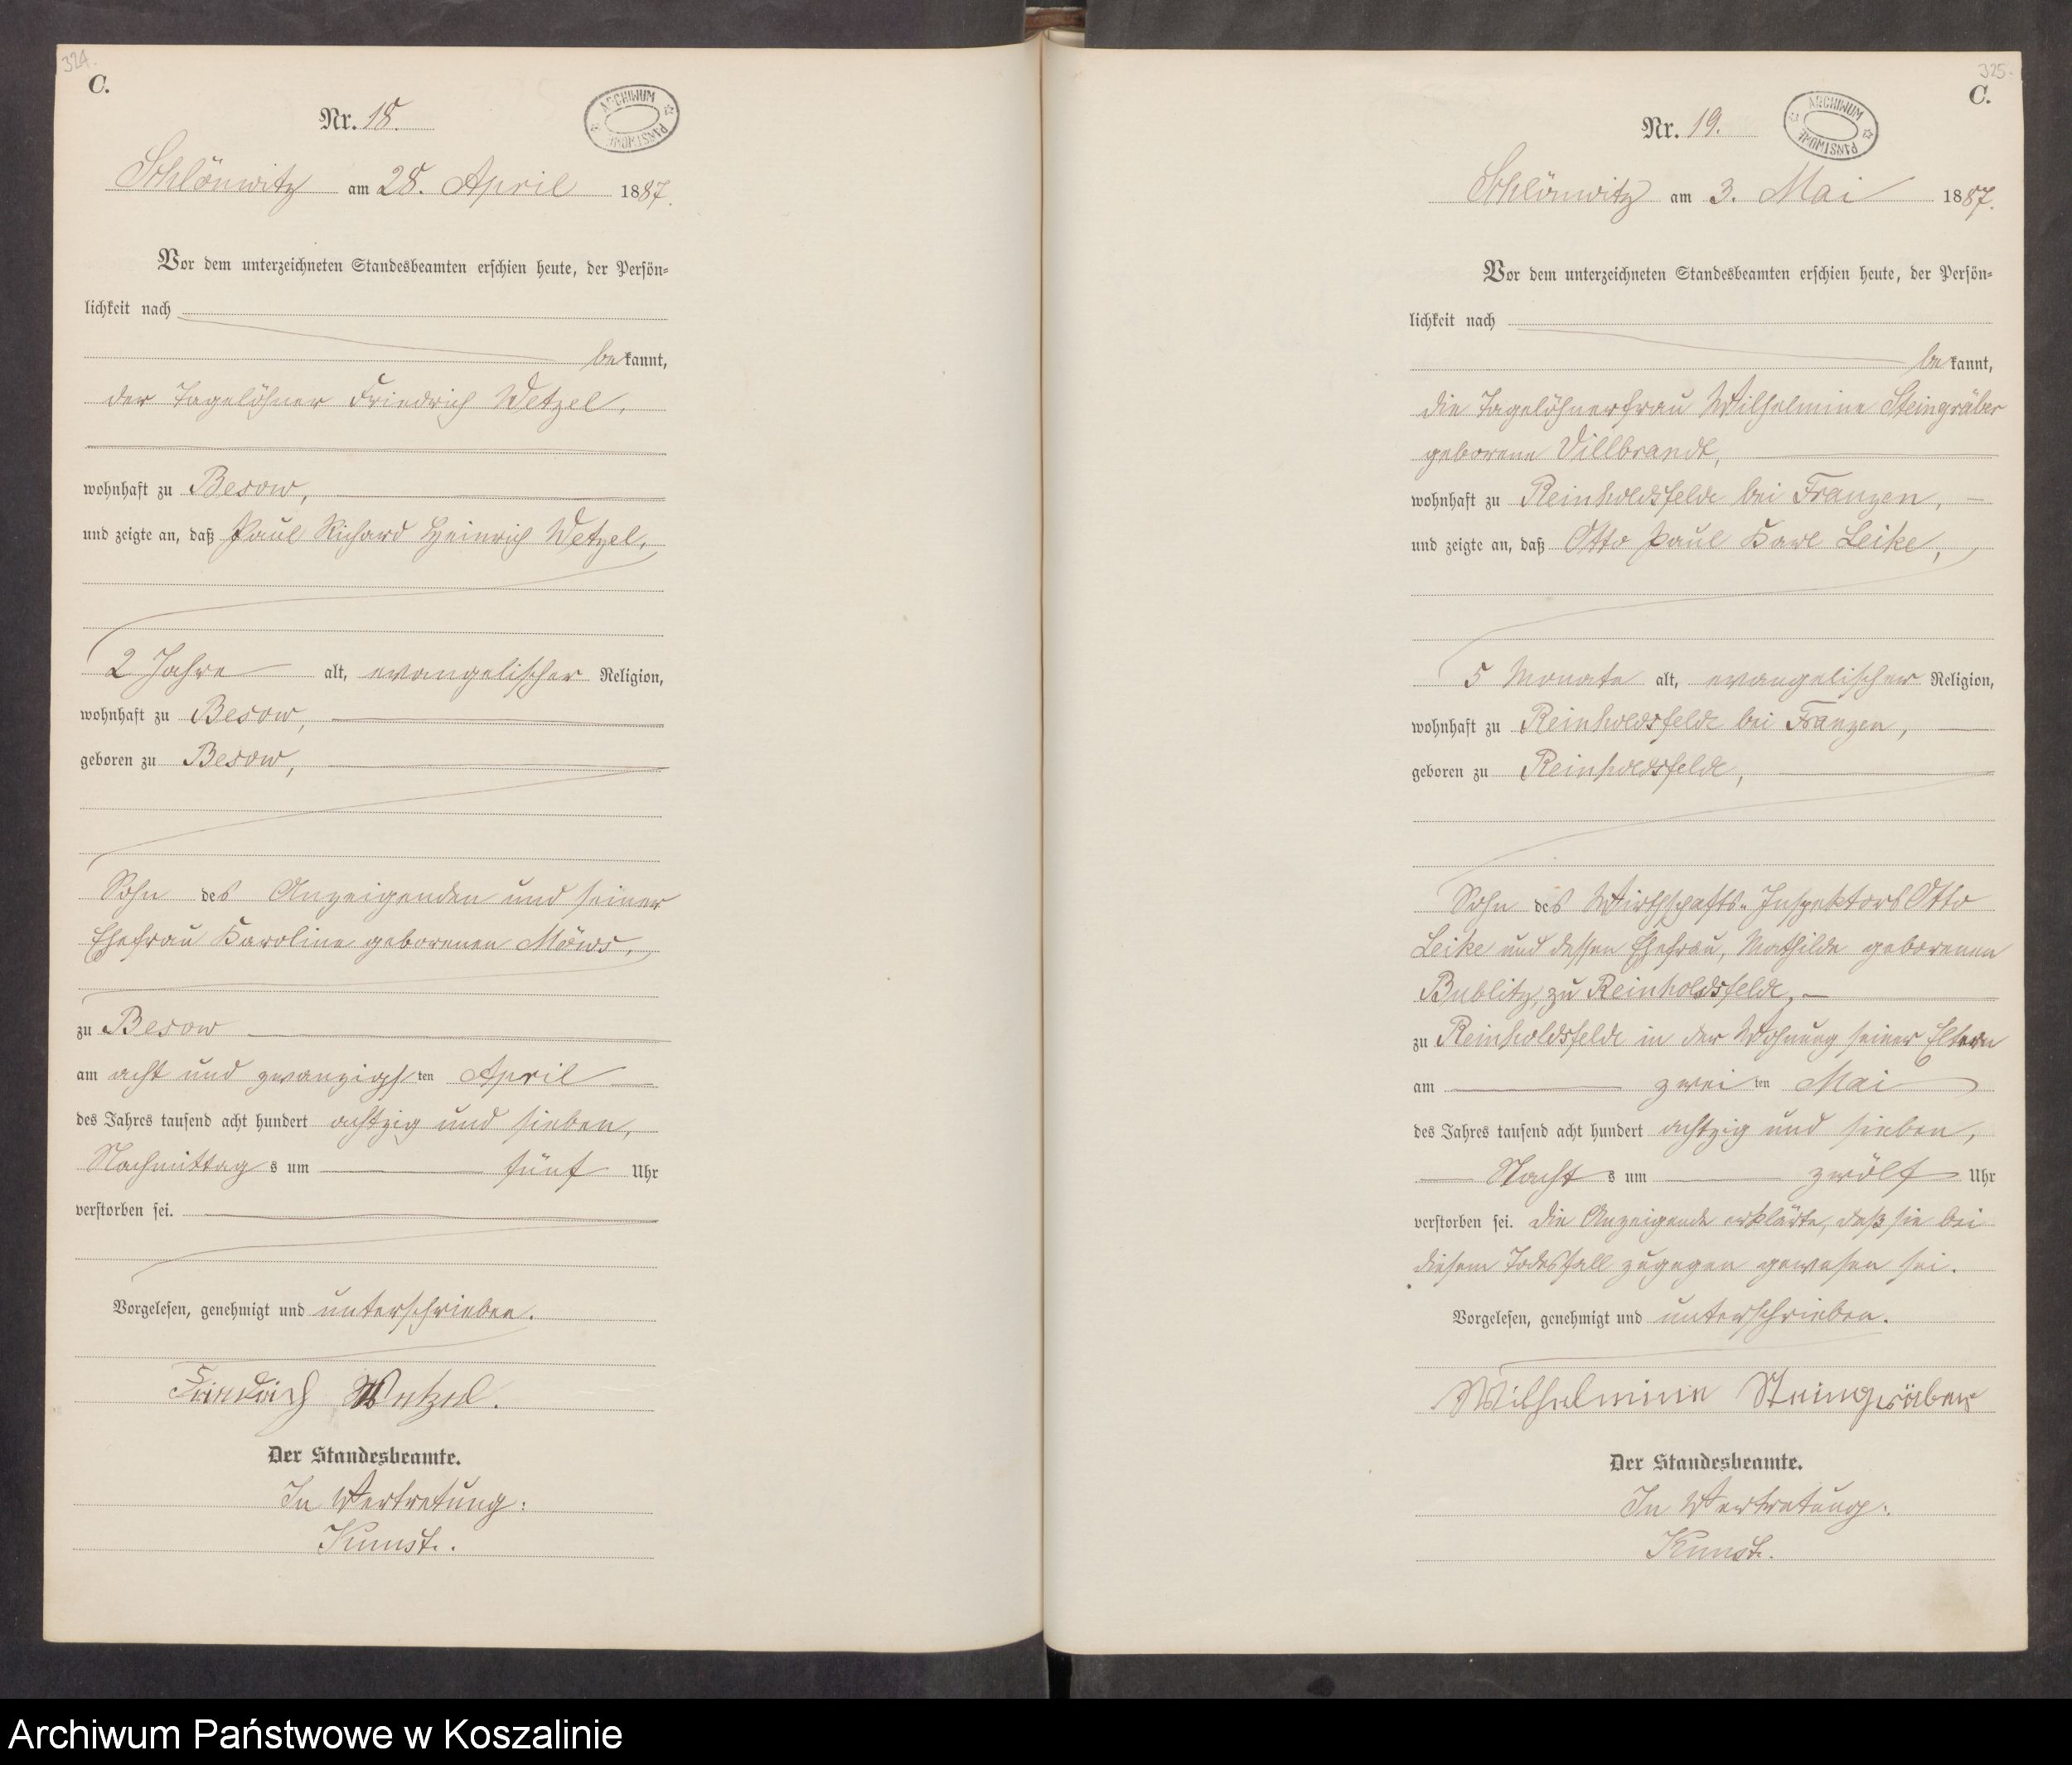 324.
C.
Nr. 18.
ARCHIWUM PAŃSTWOWE
Schlönwitz am 28. April 1887.
Vor dem unterzeichneten Standesbeamten erschien heute, der Persön-
lichkeit nach
bekannt,
der Tagelöhner Friedrich Wetzel,
wohnhaft zu Besow,
und zeigte an, daß Paul Richard Heinrich Wetzel,
2 Jahre alt, evangelischer Religion,
wohnhaft zu Besow,
geboren zu Besow,
Sohn des Anzeigenden und seiner
Ehefrau Karoline geborenen Möws,
zu Besow
am acht und zwanzigsten April
des Jahres tausend acht hundert achtzig und sieben,
Nachmittags um fünf Uhr
verstorben sei.
Vorgelesen, genehmigt und unterschrieben.
Friedrich Wetzel.
Der Standesbeamte.
In Vertretung:
Kunst.
325.
C.
Nr. 19.
ARCHIWUM PAŃSTWOWE
Schlönwitz am 3. Mai 1887.
Vor dem unterzeichneten Standesbeamten erschien heute, der Persön-
lichkeit nach
bekannt,
die Tagelöhnerfrau Wilhelmine Steingräber
geborene Villbrandt,
wohnhaft zu Reinholdsfelde bei Franzen,
und zeigte an, daß Otto Paul Karl Leike,
5 Monate alt, evangelischer Religion,
wohnhaft zu Reinholdsfelde bei Franzen,
geboren zu Reinholdsfelde,
Sohn des Wirthschafts-Inspektors Otto
Leike und dessen Ehefrau, Mathilde geborenen
Bublitz, zu Reinholdsfelde,
zu Reinholdsfelde in der Wohnung seiner Eltern
am zweiten Mai
des Jahres tausend acht hundert achtzig und sieben,
Nachts um zwölf Uhr
verstorben sei. Die Anzeigende erklärte, daß sie bei
diesem Todesfall zugegen gewesen sei.
Vorgelesen, genehmigt und unterschrieben.
Wilhelmine Steingräber
Der Standesbeamte.
In Vertretung:
Kunst.
Archiwum Państwowe w Koszalinie